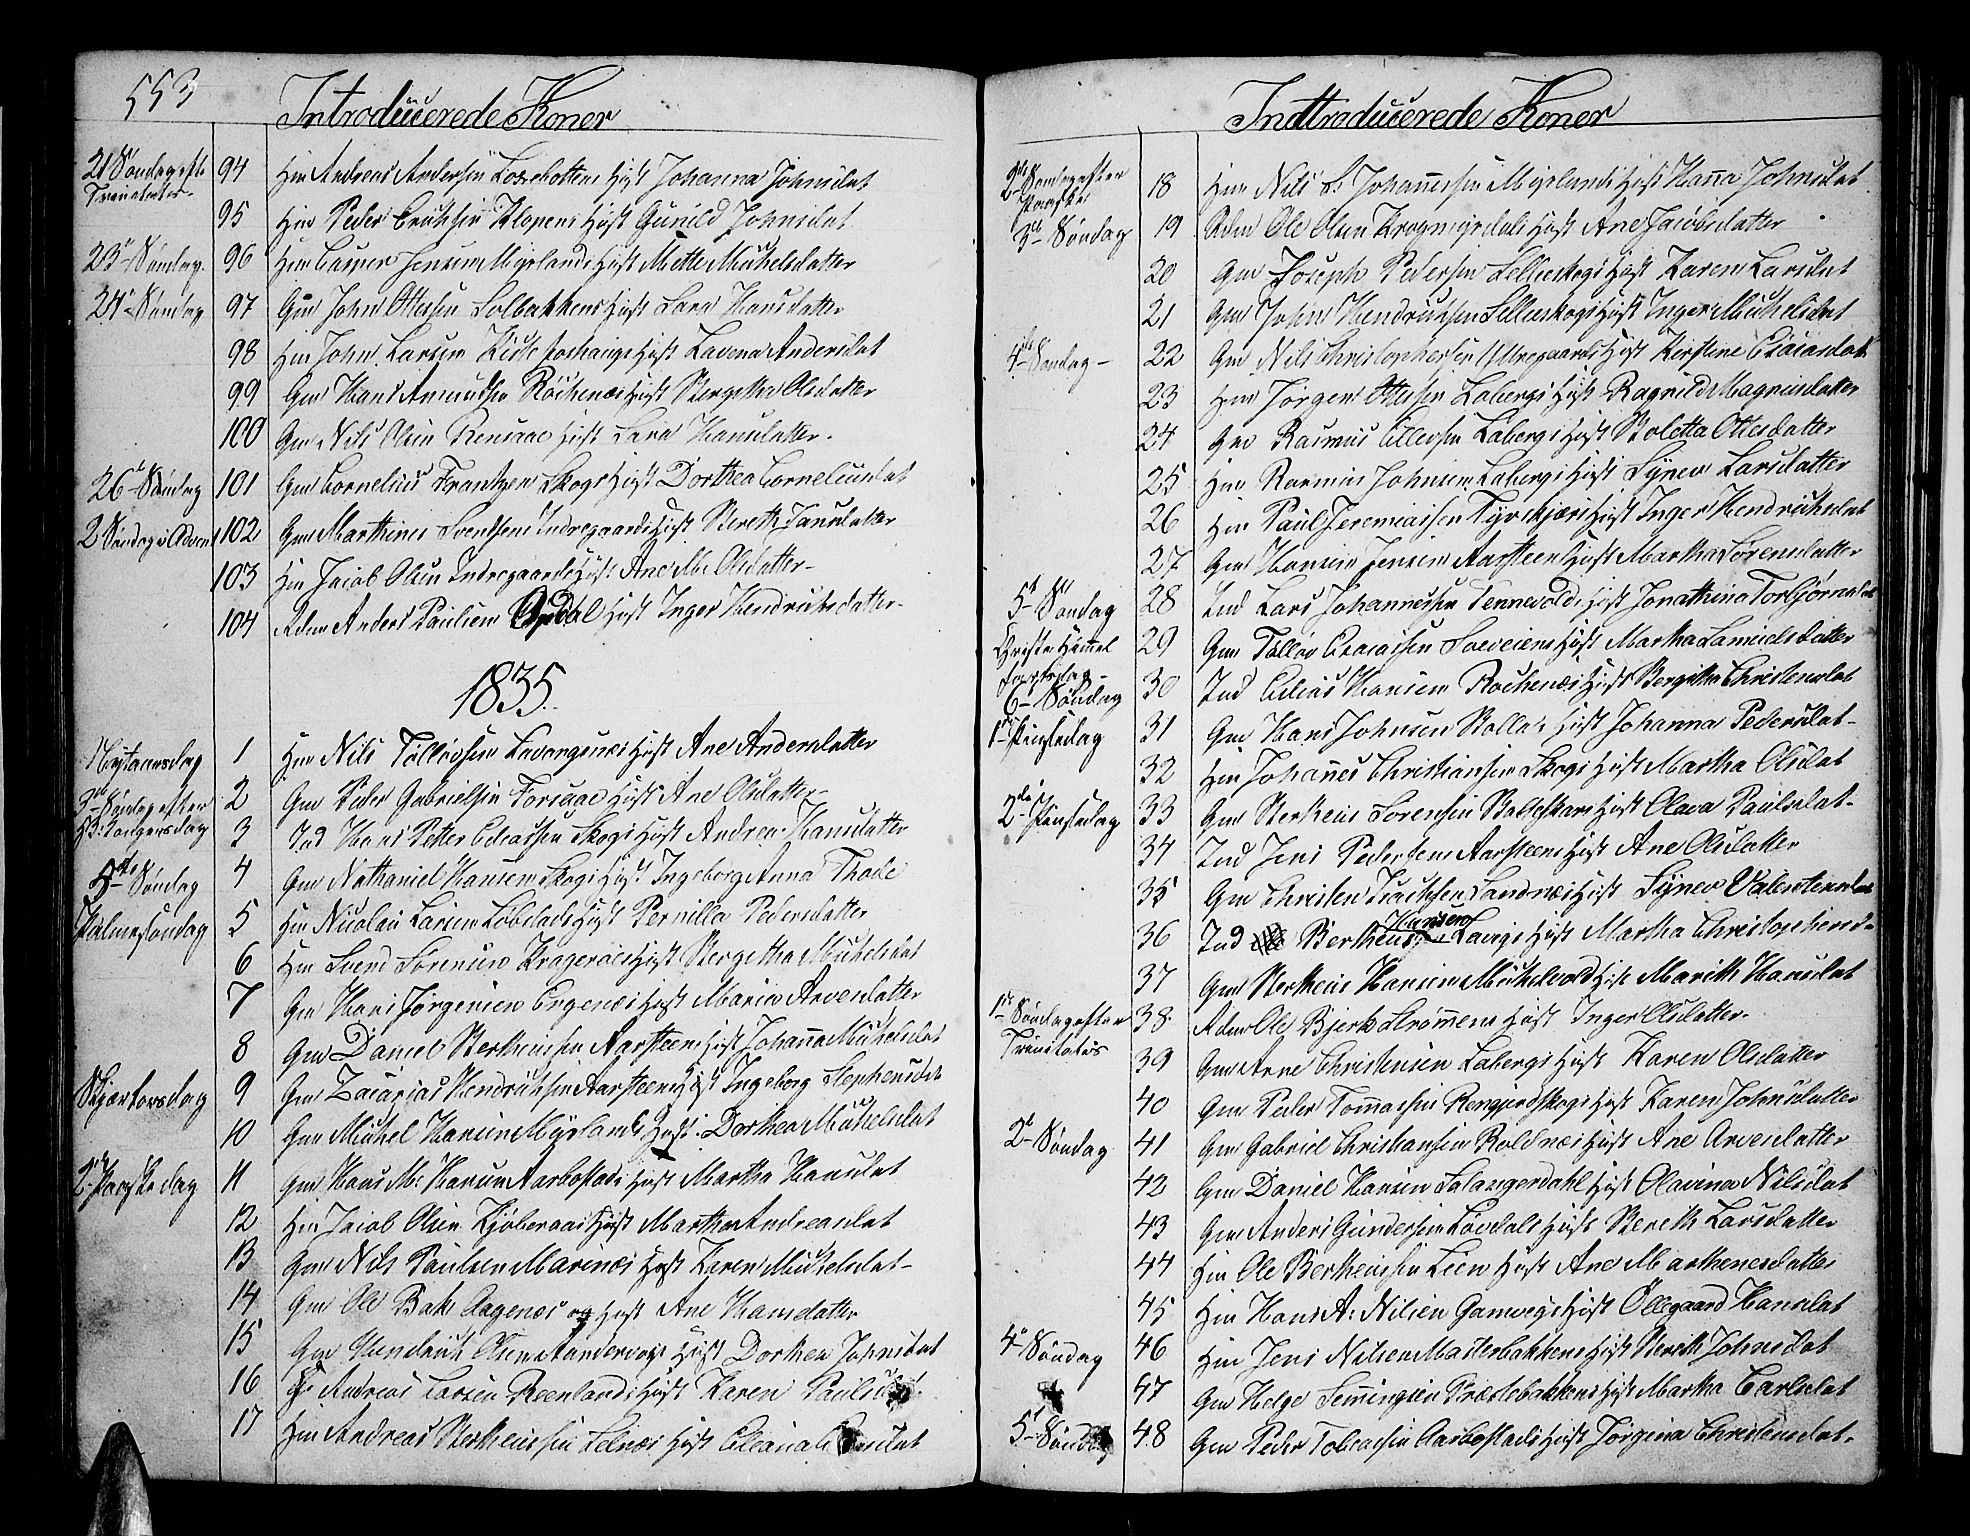 553
Introducerede Koner
21 Søndag eft. 94 Hm Andreas Andersen Hust Johanna Johnsdat
Trinitatis
95 Hm Peder Eriksen Klopens Hust Gunild Johnsdat
23 Søndag 96 Hm Casper Jensen Myrlands Hust Mette Mickelsdatter
24 Søndag 97 Gm John Ottesen Solbakkens Hust Lava Hansdatter
98 Hm John Larsen Hust Lavena Andersdat
99 Gm Hans Amundsen Røchenæs Hust Bergitha Olsdatter
100 Gm Nils Olsen Rensaae Hust Lava Hansdatter.
26 Søndag 101 Gm Cornelius Frantzen Skogs Hust Dorthea Corneliusdat
2 Søndag i Advent 102 Gm Marthines Svendsen Indregaards Hust Bereth Jansdatter
103 Hm Jacob Olsen Indregaards Hust Ane M. Olsdatter-
104 Adm Anders Paulsen Opdal Hust Inger Hendriksdatter-
1835.
Nytaarsdag 1 Hm Nils Tølløvsen Lavangsnæs Hust Ane Andersdatter
3de Søndag efter 2 Gm Peder Gabrielsen Forsaae Hust Ane Olsdatter-
H3Kongersdag 3 Ind Hans Petter Eliassen Skogs Hust Andrea Hansdatter
5te Søndag 4 Gm Nathaniel Hansen Skogs Hust Ingeborg Anna Thode
Palmesøndag 5 Hm Nicolai Larsen Løbslads Hust Pernilla Pedersdatter
6 Hm Svend Sørensen Kragerøes Hust Bergitha Mickelsdat
7 Gm Hans Jørgensen Engenæs Hust Maria Arvesdatter
8 Gm Daniel Bertheussen Aarsteens Hust Johanna Mickelsdat
Skjærtorsdag 9 Gm Zacarias Hendriksen Aarsteens Hust Ingeborg Stephensdat
10 Gm Mickel Hansen Myrlands Hust. Dorthea Mickelsdat
2den Paaskedag 11 Gm Hans M. Hansen Aarbostads Hust Martha Hansdat
12 Hm Jacob Olsen Hust Martha Andreasdat
13 Gm Nils Paulsen Marinæs Hust Karen Mickelsdat-
14 Gm Ole Bak Aagenæs og Hust Ane Hansdatter
15 Gm Hendrick Olsen Hust Dorthea Johnsdat
16 Andreas Larsen Reenlands Hust Karen Paulsdat
17 Hm Andreas Bertheussen Selnæs Hust
Indtroducerede Koner
2de Søndag efter 18 Hm Nils L: Johannesen Myrlands Hust Hanna Johnsdat
Paaske
3de Søndag 19 Adm Ole Olsen Krogmyrdals Hust Ane Jacobsdatter
20 Gm Joseph Pedersen Sellieskogs Hust Karen Larsdat
21 Gm John Hendriksen Sellieskogs Hust Inger Mickelsdat
4de Søndag- 22 Gm Nils Christophersen Uttregaards Hust Kirstine Esaiasdat
23 Hm Jørgen Ottesen Labergs Hust Ragnild Magnusdatter
24 Gm Rasmus Ellefsen Labergs Hust Boletta Ottesdatter
25 Hm Rasmus Johnsen Labergs Hust Synev Larsdatter
26 Hm Paul Jeremiassen Hust Inger Hendriksdat
27 Gm Hansen Jensen Aarsteen Hust Martha Sørensdatter
5te Søndag 28 Ind Lars Johannessen Tennevolds Hust Jonathina Torbjørnsdat
Christi Himmel 29 Gm Tolløv Esaiassen Sveveiens Hust Martha Samuelsdatter
fartsdag-
6te Søndag 30 Ind Elias Hansen Rochenæs Hust Bergitha Christensdat
1ste Pintsedag 31 Gm Hans Johnsen Rolla Hust Johanna Pedersdat-
32 Hm Johanes Christiansen Skogs Hust Martha Olsdat
2den Pintsedag 33 Gm Bertheus Sørensen Hust Olava Paulsdat-
34 Ind Jens Pedersen Aarsteens Hust Ane Olsdatter
35 Gm Christen Isachsen Sandnæs Hust Synev Valentinsdat
Hansen
36 Ind Bertheus Lavigs Hust Martha Christophersd-
37 Gm Bertheus Hansen Mickelvold Hust Mareth Hansdat
1ste Søndag efter 38. Adm Ole Bjerk Strømmens Hust Inger Olsdatter.
Trinitatis
39 Gm Arne Christensen Labergs Hust Karen Olsdatter
40 Gm Peder Tommassen Rengjerdskogs Hust Karen Johnsdatter
2de Søndag 41 Gm Gabriel Christiansen Roldnæs Hust Ane Arvesdatter
42 Gm Daniel Hansen Salangerdahl Hust Olavina Nilsdat
43 Gm Anders Gundersen Løvdals Hust Bereth Larsdatter
44 Hm Ole Bertheussen Lien Hust Ane Marthenesdatter
45 Hm Hans A: Nilsen Gamvigs Hust Øllegaard Hansdat
4de Søndag 46 Hm Jens Nilsen Masterbakkens Hust Bereth Johnsdat
47 Gm Helge Semmingsen Prestebakkens Hust Martha Carlsdat
5te Søndag 48 Gm Peder Tobiassen Aarbostads Hust Jørgina Christensdat.